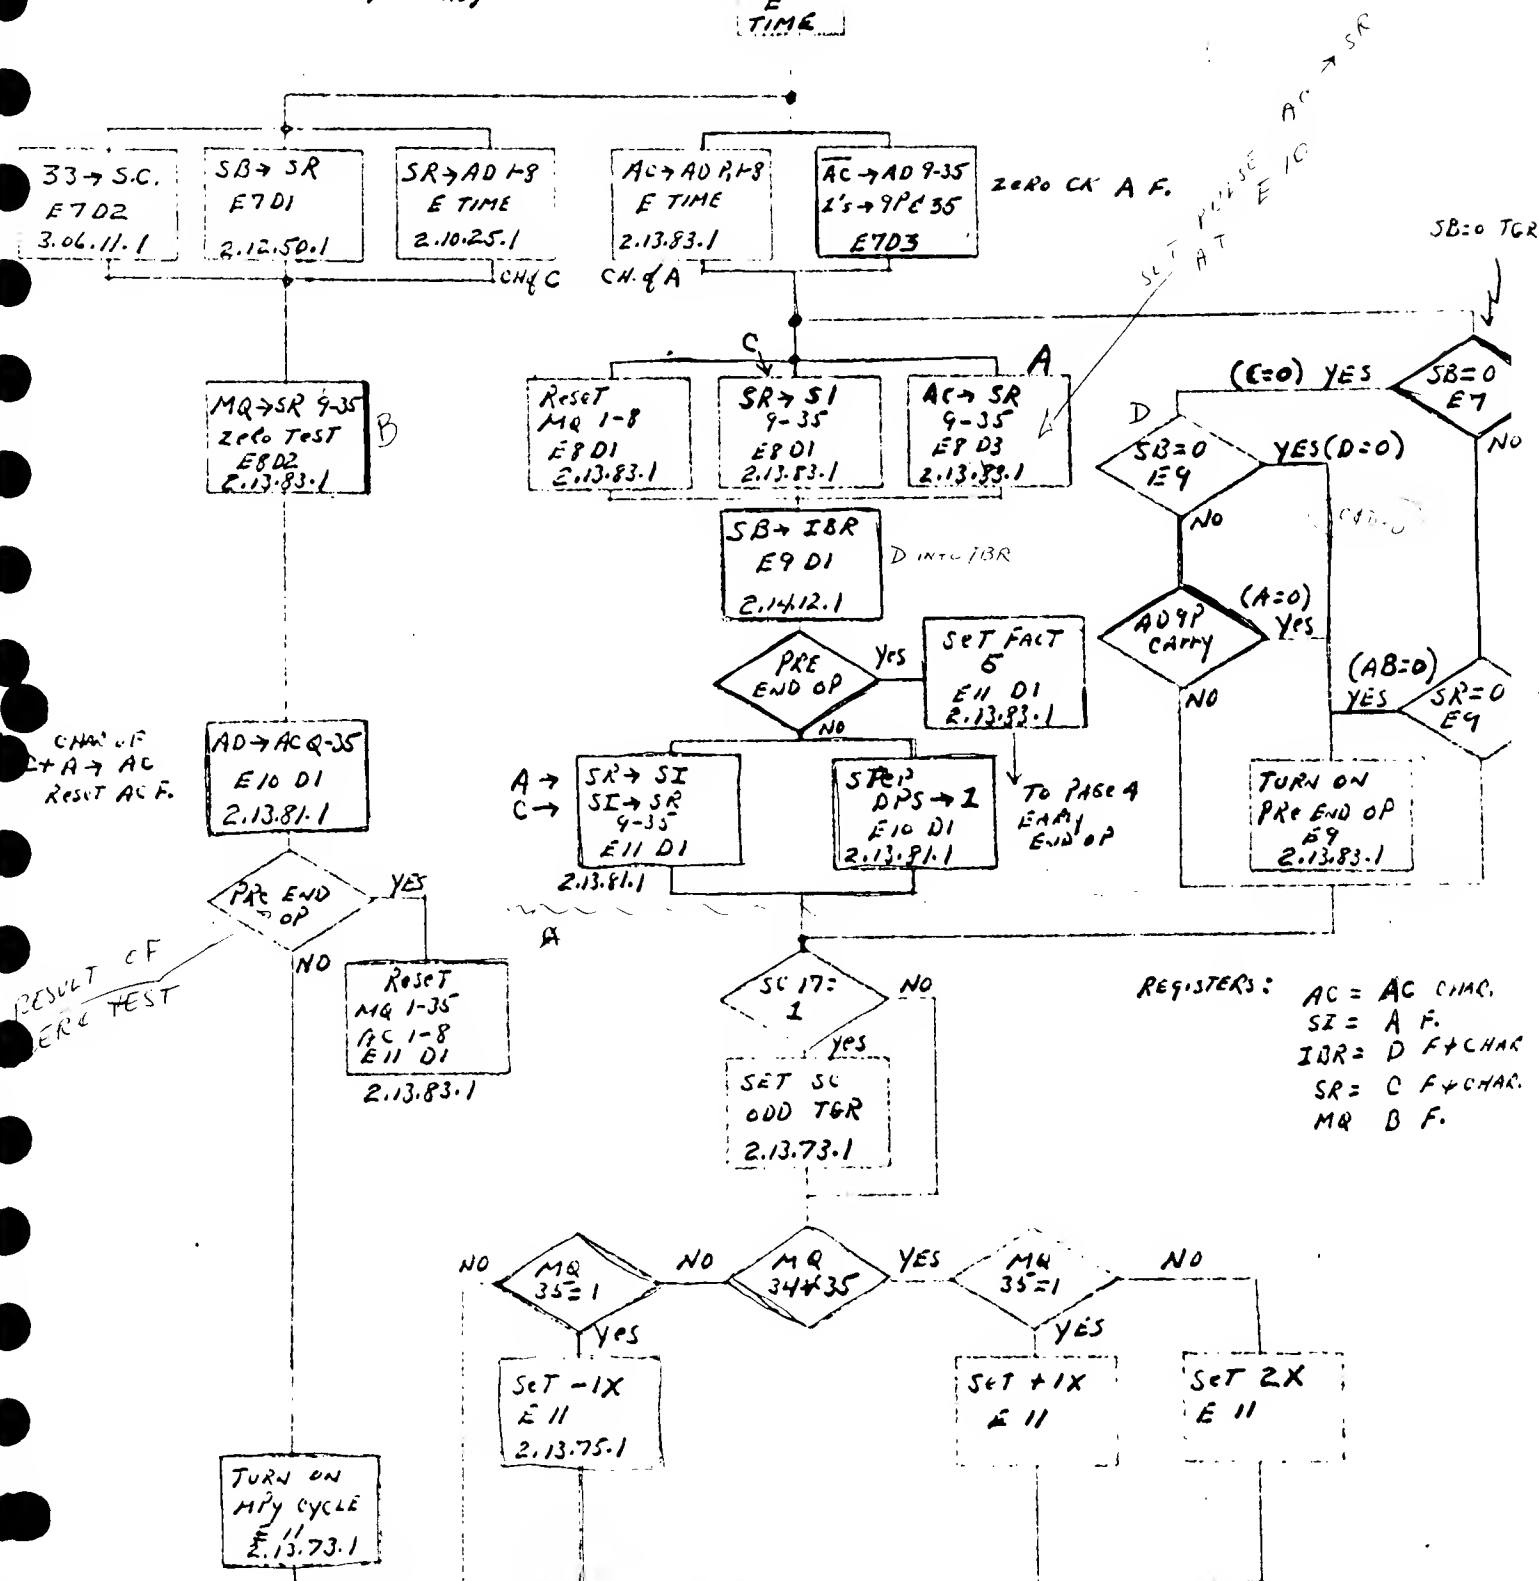 E
TIME
33 → S.C.
E7D2
3.06.11.1
SB → SR
E7D1
2.12.50.1
SR → AD 1-8
E TIME
2.10.25.1
CH of C
AC → AD P,1-8
E TIME
2.13.83.1
CH. of A
AC → AD 9-35
1's → 9P & 35
E7D3
ZERO CK A F.
SET PULSE AC → SR
AT E10
SB=0 TGR
MQ → SR 9-35
ZERO TEST
E8D2
2.13.83.1
B
RESET
MQ 1-8
E8 D1
2.13.83.1
C
SR → SI
9-35
E8 D1
2.13.83.1
A
AC → SR
9-35
E8 D3
2.13.83.1
SB=0
E7
(C=0) YES
NO
D
SB=0
E9
YES (D=0)
NO
SB → IBR
E9 D1
2.14.12.1
D INTO IBR
AD9P
CARRY
(A=0)
YES
NO
(AB=0)
YES
SR=0
E9
PRE
END OP
YES
NO
SET FACT
5
E11 D1
2.13.83.1
TO PAGE 4
EARLY
END OP
CHAR OF
C+A → AC
RESET AC F.
AD → AC Q-35
E10 D1
2.13.81.1
A →
C →
SR → SI
SI → SR
9-35
E11 D1
2.13.81.1
STEP
DPS → 1
E10 D1
2.13.81.1
TURN ON
PRE END OP
E9
2.13.83.1
PRE END
OP
YES
NO
RESULT OF
ZERO TEST
A
RESET
MQ 1-35
AC 1-8
E11 D1
2.13.83.1
SC 17=
1
NO
YES
REGISTERS:
AC = AC CHAR.
SI = A F.
IBR = D F+CHAR
SR = C F+CHAR.
MQ B F.
SET SC
ODD TGR
2.13.73.1
NO
MQ
35=1
NO
MQ
34≠35
YES
MQ
35=1
NO
YES
YES
SET -1X
E 11
2.13.75.1
SET +1X
E 11
SET 2X
E 11
TURN ON
MPY CYCLE
E 11
2.13.73.1